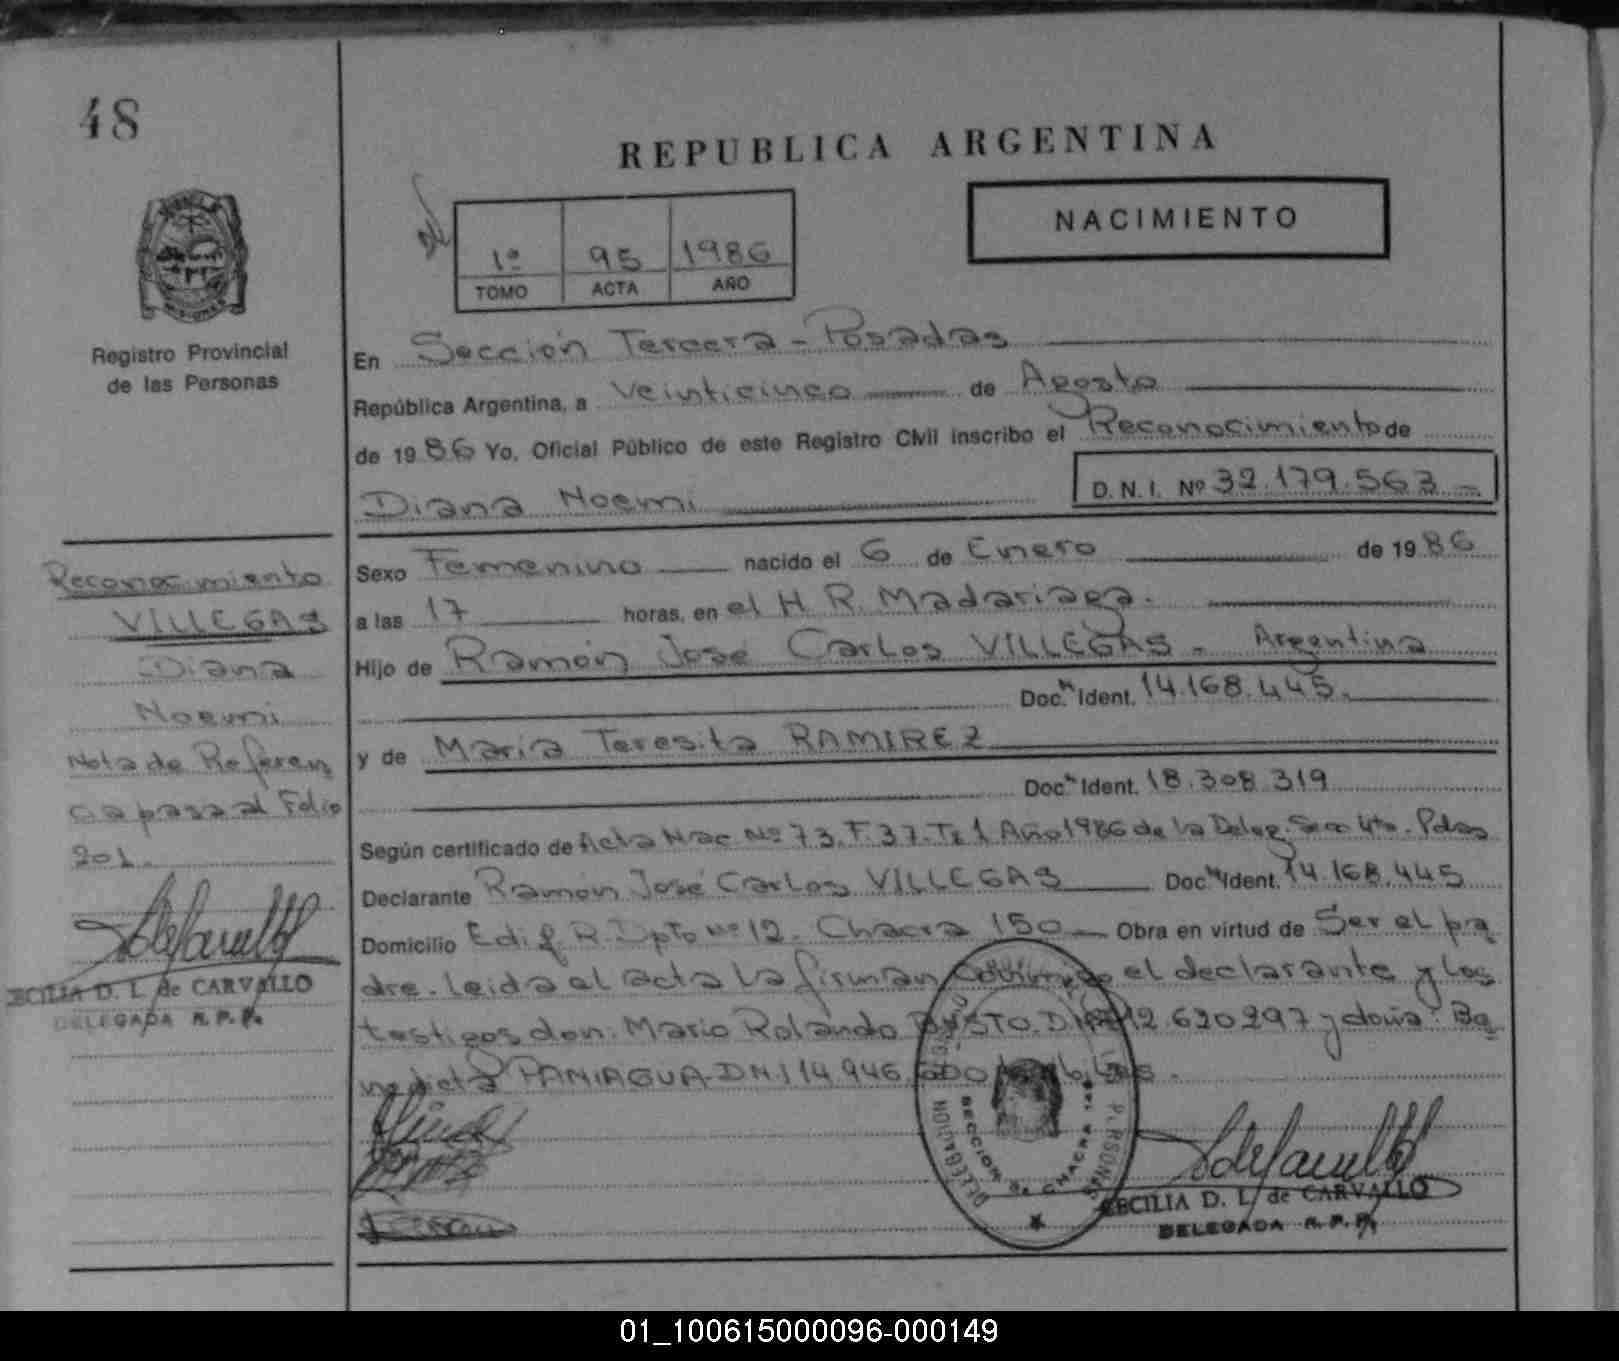 48
REPUBLICA ARGENTINA
NACIMIENTO
1º 95 1986
TOMO ACTA AÑO
Registro Provincial
de las Personas
En Sección Tercera - Posadas
República Argentina, a Veinticinco de Agosto
de 1986 Yo, Oficial Público de este Registro Civil inscribo el Reconocimiento de
Diana Noemi D.N.I. Nº 32.179.563 -
Sexo Femenino nacido el 6 de Enero de 1986
a las 17 horas, en el H. R. Madariaga.
Hijo de Ramón José Carlos VILLEGAS - Argentina
Doc. Ident. 14.168.445.
y de Maria Teresita RAMIREZ
Doc. Ident. 18.308.319
Según certificado de Acta Nac. Nº 73. F. 37. Tº 1 Año 1986 de la Deleg. Secc 4ta. Pdas
Declarante Ramón José Carlos VILLEGAS Doc. Ident. 14.168.445
Domicilio Edif. R. Dpto Nº 12. Chacra 150 Obra en virtud de Ser el pa
dre. Leida el acta la firman conmigo el declarante y los
testigos don: Mario Rolando DNI 12.620.297 y doña: Be
nedicta PANIAGUA - DNI 14.946.
Reconocimiento
VILLEGAS
Diana
Noemi
Nota de Referen
cia pasa al Folio
201.
CECILIA D. L. de CARVALLO
DELEGADA R.P.P.
DELEGACION
SECCION 3a. CHACRA
CECILIA D. L. de CARVALLO
DELEGADA R.P.P.
01_100615000096-000149